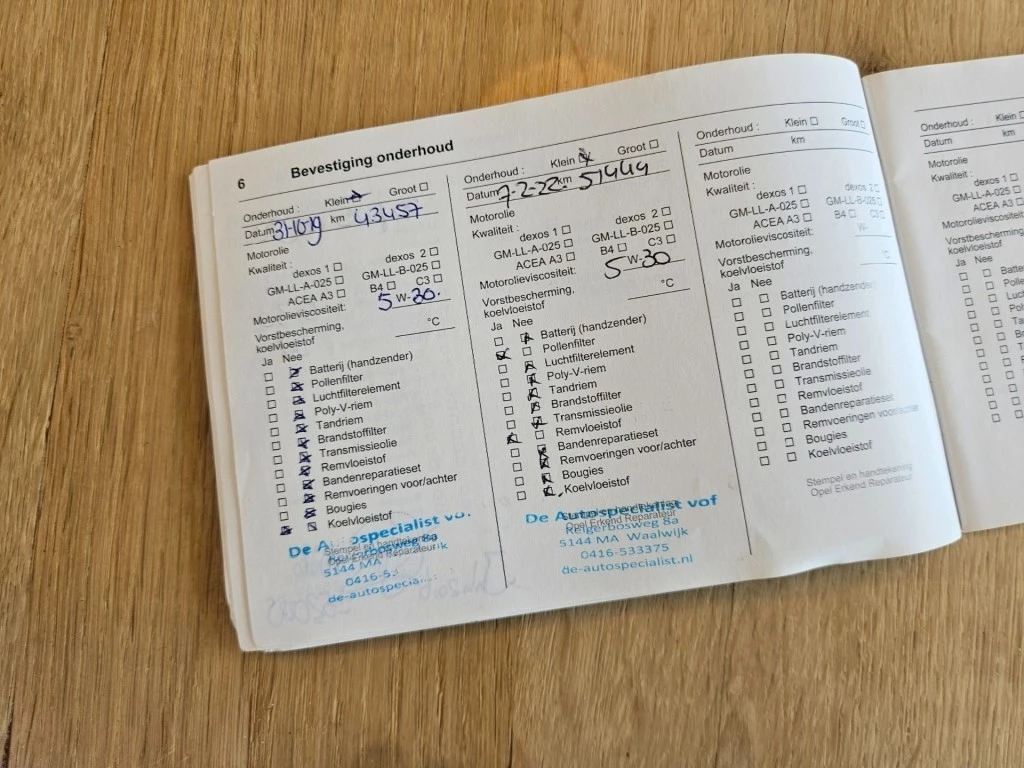 6 Bevestiging onderhoud
Onderhoud : Klein Groot
Datum 31-10-19 km 43457
Motorolie
Kwaliteit :
dexos 1 dexos 2
GM-LL-A-025 GM-LL-B-025
ACEA A3 B4 C3
Motorolieviscositeit: 5 W-30.
Vorstbescherming,
koelvloeistof °C
Ja Nee
Batterij (handzender)
Pollenfilter
Luchtfilterelement
Poly-V-riem
Tandriem
Brandstoffilter
Transmissieolie
Remvloeistof
Bandenreparatieset
Remvoeringen voor/achter
Bougies
Koelvloeistof
Stempel en handtekening
Opel Erkend Reparateur
5144 MA
de-autospecia
Onderhoud : Klein Groot
Datum 7-2-22 km 51449
Motorolie
Kwaliteit :
dexos 1 dexos 2
GM-LL-A-025 GM-LL-B-025
ACEA A3 B4 C3
Motorolieviscositeit: 5 W-30
Vorstbescherming,
koelvloeistof °C
Ja Nee
Batterij (handzender)
Pollenfilter
Luchtfilterelement
Poly-V-riem
Tandriem
Brandstoffilter
Transmissieolie
Remvloeistof
Bandenreparatieset
Remvoeringen voor/achter
Bougies
Koelvloeistof
De Autospecialist vof
Opel Erkend Reparateur
Reigerbosweg 8a
5144 MA Waalwijk
0416-533375
de-autospecialist.nl
Onderhoud : Klein Groot
Datum km
Motorolie
Kwaliteit :
dexos 1 dexos 2
GM-LL-A-025 GM-LL-B-025
ACEA A3 B4 C3
Motorolieviscositeit: W-
Vorstbescherming,
koelvloeistof °C
Ja Nee
Batterij (handzender)
Pollenfilter
Luchtfilterelement
Poly-V-riem
Tandriem
Brandstoffilter
Transmissieolie
Remvloeistof
Bandenreparatieset
Remvoeringen voor/achter
Bougies
Koelvloeistof
Stempel en handtekening
Opel Erkend Reparateur
Onderhoud : Klein
Datum km
Motorolie
Kwaliteit :
dexos 1
GM-LL-A-025
ACEA A3
Motorolieviscositeit
Vorstbescherming
koelvloeistof
Ja Nee